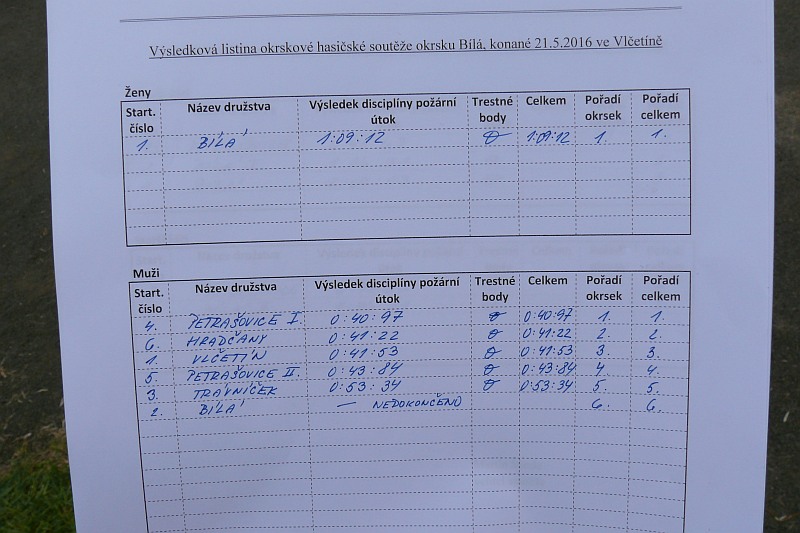 Výsledková listina okrskové hasičské soutěže okrsku Bílá, konané 21.5.2016 ve Vlčetíně
Ženy
Start. číslo Název družstva Výsledek disciplíny požární útok Trestné body Celkem Pořadí okrsek Pořadí celkem
1. BÍLÁ 1:09:12 0 1:09:12 1. 1.
Muži
Start. číslo Název družstva Výsledek disciplíny požární útok Trestné body Celkem Pořadí okrsek Pořadí celkem
4. PETRAŠOVICE I. 0:40:97 0 0:40:97 1. 1.
6. HRADČANY 0:41:22 0 0:41:22 2. 2.
1. VLČETÍN 0:41:53 0 0:41:53 3. 3.
5. PETRAŠOVICE II. 0:43:84 0 0:43:84 4. 4.
3. TRÁVNÍČEK 0:53:34 0 0:53:34 5. 5.
2. BÍLÁ — NEDOKONČENO 6. 6.